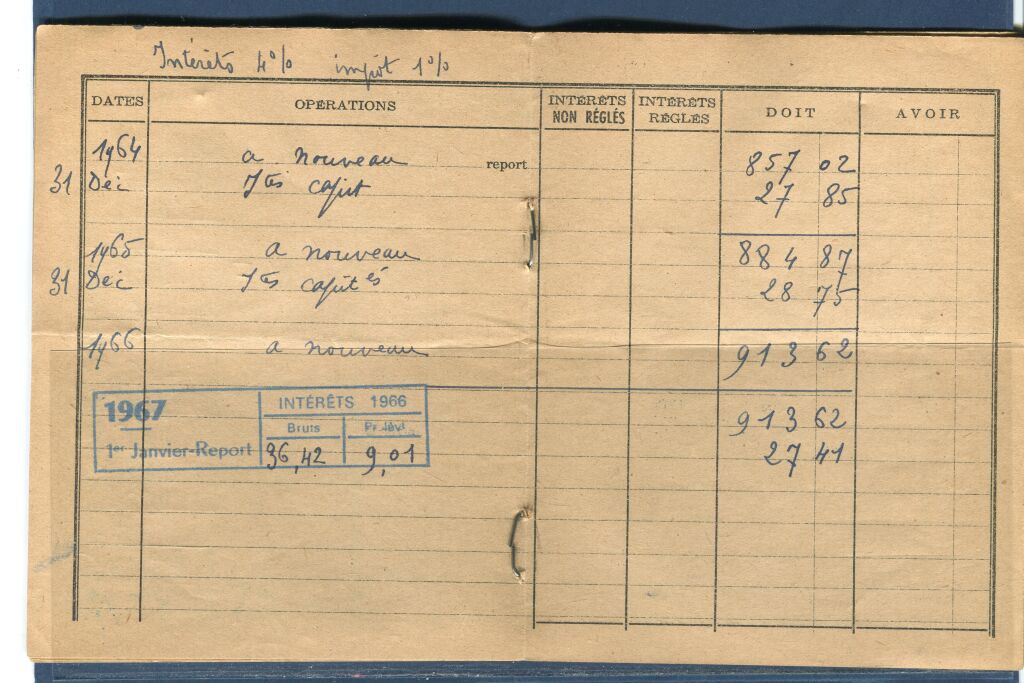 Intérêts 4% impôt 1%
DATES OPÉRATIONS INTÉRÊTS NON RÉGLÉS INTÉRÊTS RÉGLÉS DOIT AVOIR
1964 a nouveau report 857 02
31 Déc Its capit 27 85
1965 a nouveau 884 87
31 Déc Its capités 28 75
1966 a nouveau 913 62
1967 INTÉRÊTS 1966
Bruts Prélèvt 913 62
1er Janvier-Report 36,42 9,01 27 41